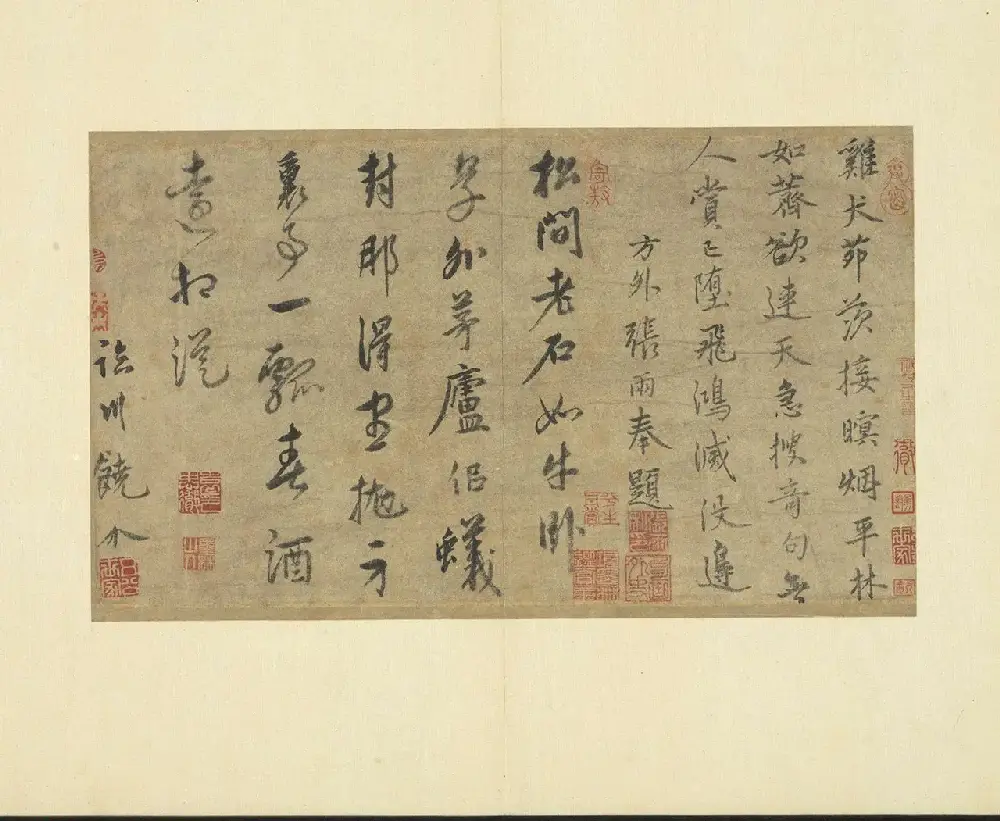 雞犬茆茨接暝烟平林
如薺欲連天急搜奇句無
人賞已墮飛鴻滅没邊
方外張雨奉題
松間老石如牛卧
草外茅廬侣蟻
封那得生拋方
裏事一瓢春酒
遠相從
臨川饒介